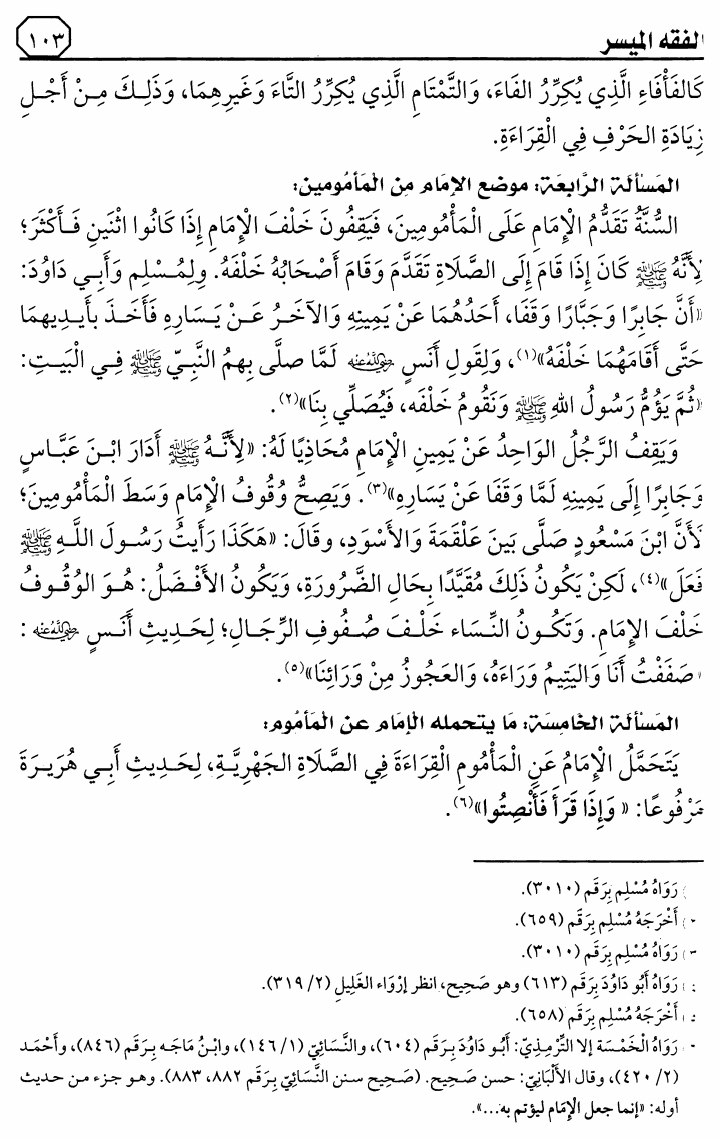 الفقه الميسر
١٠٣
كَالفَأْفَاءِ الَّذِي يُكرِّرُ الفَاءَ، وَالتَّمْتَامِ الَّذِي يُكرِّرُ التَّاءَ وَغَيرِهِمَا، وَذَلِكَ مِنْ أَجْلِ
زِيَادَةِ الحَرْفِ فِي الْقِرَاءَةِ.
المَسألة الرَّابعَة: موضع الإمَام من المَأمُومين:
السُّنَّةُ تَقَدُّمُ الإِمَامِ عَلَى الْمَأْمُومِينَ، فَيَقِفُونَ خَلْفَ الْإِمَامِ إِذَا كَانُوا اثْنَينِ فَأَكْثَرَ؛
لِأَنَّهُ ﷺ كَانَ إِذَا قَامَ إِلَى الصَّلَاةِ تَقَدَّمَ وَقَامَ أَصْحَابُهُ خَلْفَهُ. ولِمُسْلِمٍ وَأَبِي دَاوُدَ:
«أَنَّ جَابِرًا وَجَبَّارًا وَقَفَا، أَحَدُهُمَا عَنْ يَمِينِهِ وَالآخَرُ عَنْ يَسَارِهِ فَأَخَذَ بأَيدِيهمَا
حَتَّى أَقَامَهُمَا خَلْفَهُ»(١)، وَلِقَولِ أَنَسٍ رضي الله عنه لَمَّا صلَّى بِهمُ النَّبِيّ ﷺ فِي الْبَيتِ:
«ثُمَّ يَؤُمُّ رَسُولُ اللهِ ﷺ وَنَقُومُ خَلْفَه، فَيُصَلِّي بِنَا»(٢).
وَيَقِفُ الرَّجُلُ الوَاحِدُ عَنْ يَمِينِ الْإِمَامِ مُحَاذِيًا لَهُ: «لِأَنَّهُ ﷺ أَدَارَ ابْنَ عَبَّاسٍ
وَجَابِرًا إِلَى يَمِينِهِ لَمَّا وَقَفَا عَنْ يَسَارِهِ»(٣). وَيَصِحُّ وُقُوفُ الإِمَامِ وَسَطَ الْمَأمُومِينَ؛
لَأَنَّ ابْنَ مَسْعُودٍ صَلَّى بَينَ عَلْقَمَةَ وَالْأَسْوَدِ، وقَالَ: «هَكَذَا رَأَيتُ رَسُولَ اللَّهِ ﷺ
فَعَلَ»(٤)، لَكِنْ يَكُونُ ذَلِكَ مُقَيَّدًا بِحَالِ الضَّرُورَةِ، وَيَكُونُ الأَفْضَلُ: هُوَ الوُقُوفُ
خَلْفَ الإِمَامِ. وَتَكُونُ النِّسَاء خَلْفَ صُفُوفِ الرِّجَالِ؛ لِحَدِيثِ أَنَسٍ رضي الله عنه :
صَفَفْتُ أَنَا وَالْيَتِيمُ وَرَاءَهُ، وَالعَجُوزُ مِنْ وَرَائِنَا»(٥).
المَسألة الخَامسَة: مَا يتحمله الإمَام عن المَأمُوم:
يَتَحَمَّلُ الْإِمَامُ عَنِ الْمَأْمُومِ الْقِرَاءَةَ فِي الصَّلَاةِ الْجَهْرِيَّةِ، لِحَدِيثِ أَبِي هُرَيرَةَ
مَرْفُوعًا: « وَإِذَا قَرَأَ فَأَنْصِتُوا»(٦).
رَوَاهُ مُسْلِم بِرَقَم (٣٠١٠).
أَخْرَجَهُ مُسْلِم بِرَقَم (٦٥٩).
رَوَاهُ مُسْلِم بِرَقَم (٣٠١٠).
رَوَاهُ أَبُو دَاوُدَ بِرَقَم (٦١٣) وهو صَحِيح، انظر إرْوَاء الغَلِيلِ (٢/ ٣١٩).
أَخْرَجَهُ مُسْلِم بِرَقَم (٦٥٨).
رَوَاهُ الْخَمْسَة إلا التِّرْمِذِيّ: أَبُو دَاوُدَ بِرَقَم (٦٠٤)، والنَّسَائِيّ (١/ ١٤٦)، وابْنُ مَاجَه بِرَقَم (٨٤٦)، وأَحْمَد
(٢/ ٤٢٠)، وقال الأَلْبَانِيّ: حسن صَحِيح. (صَحِيح سنن النَّسَائِيّ بِرَقَم ٨٨٢، ٨٨٣). وهو جزء من حديث
أوله: «إنما جعل الإِمَام ليؤتم به...».